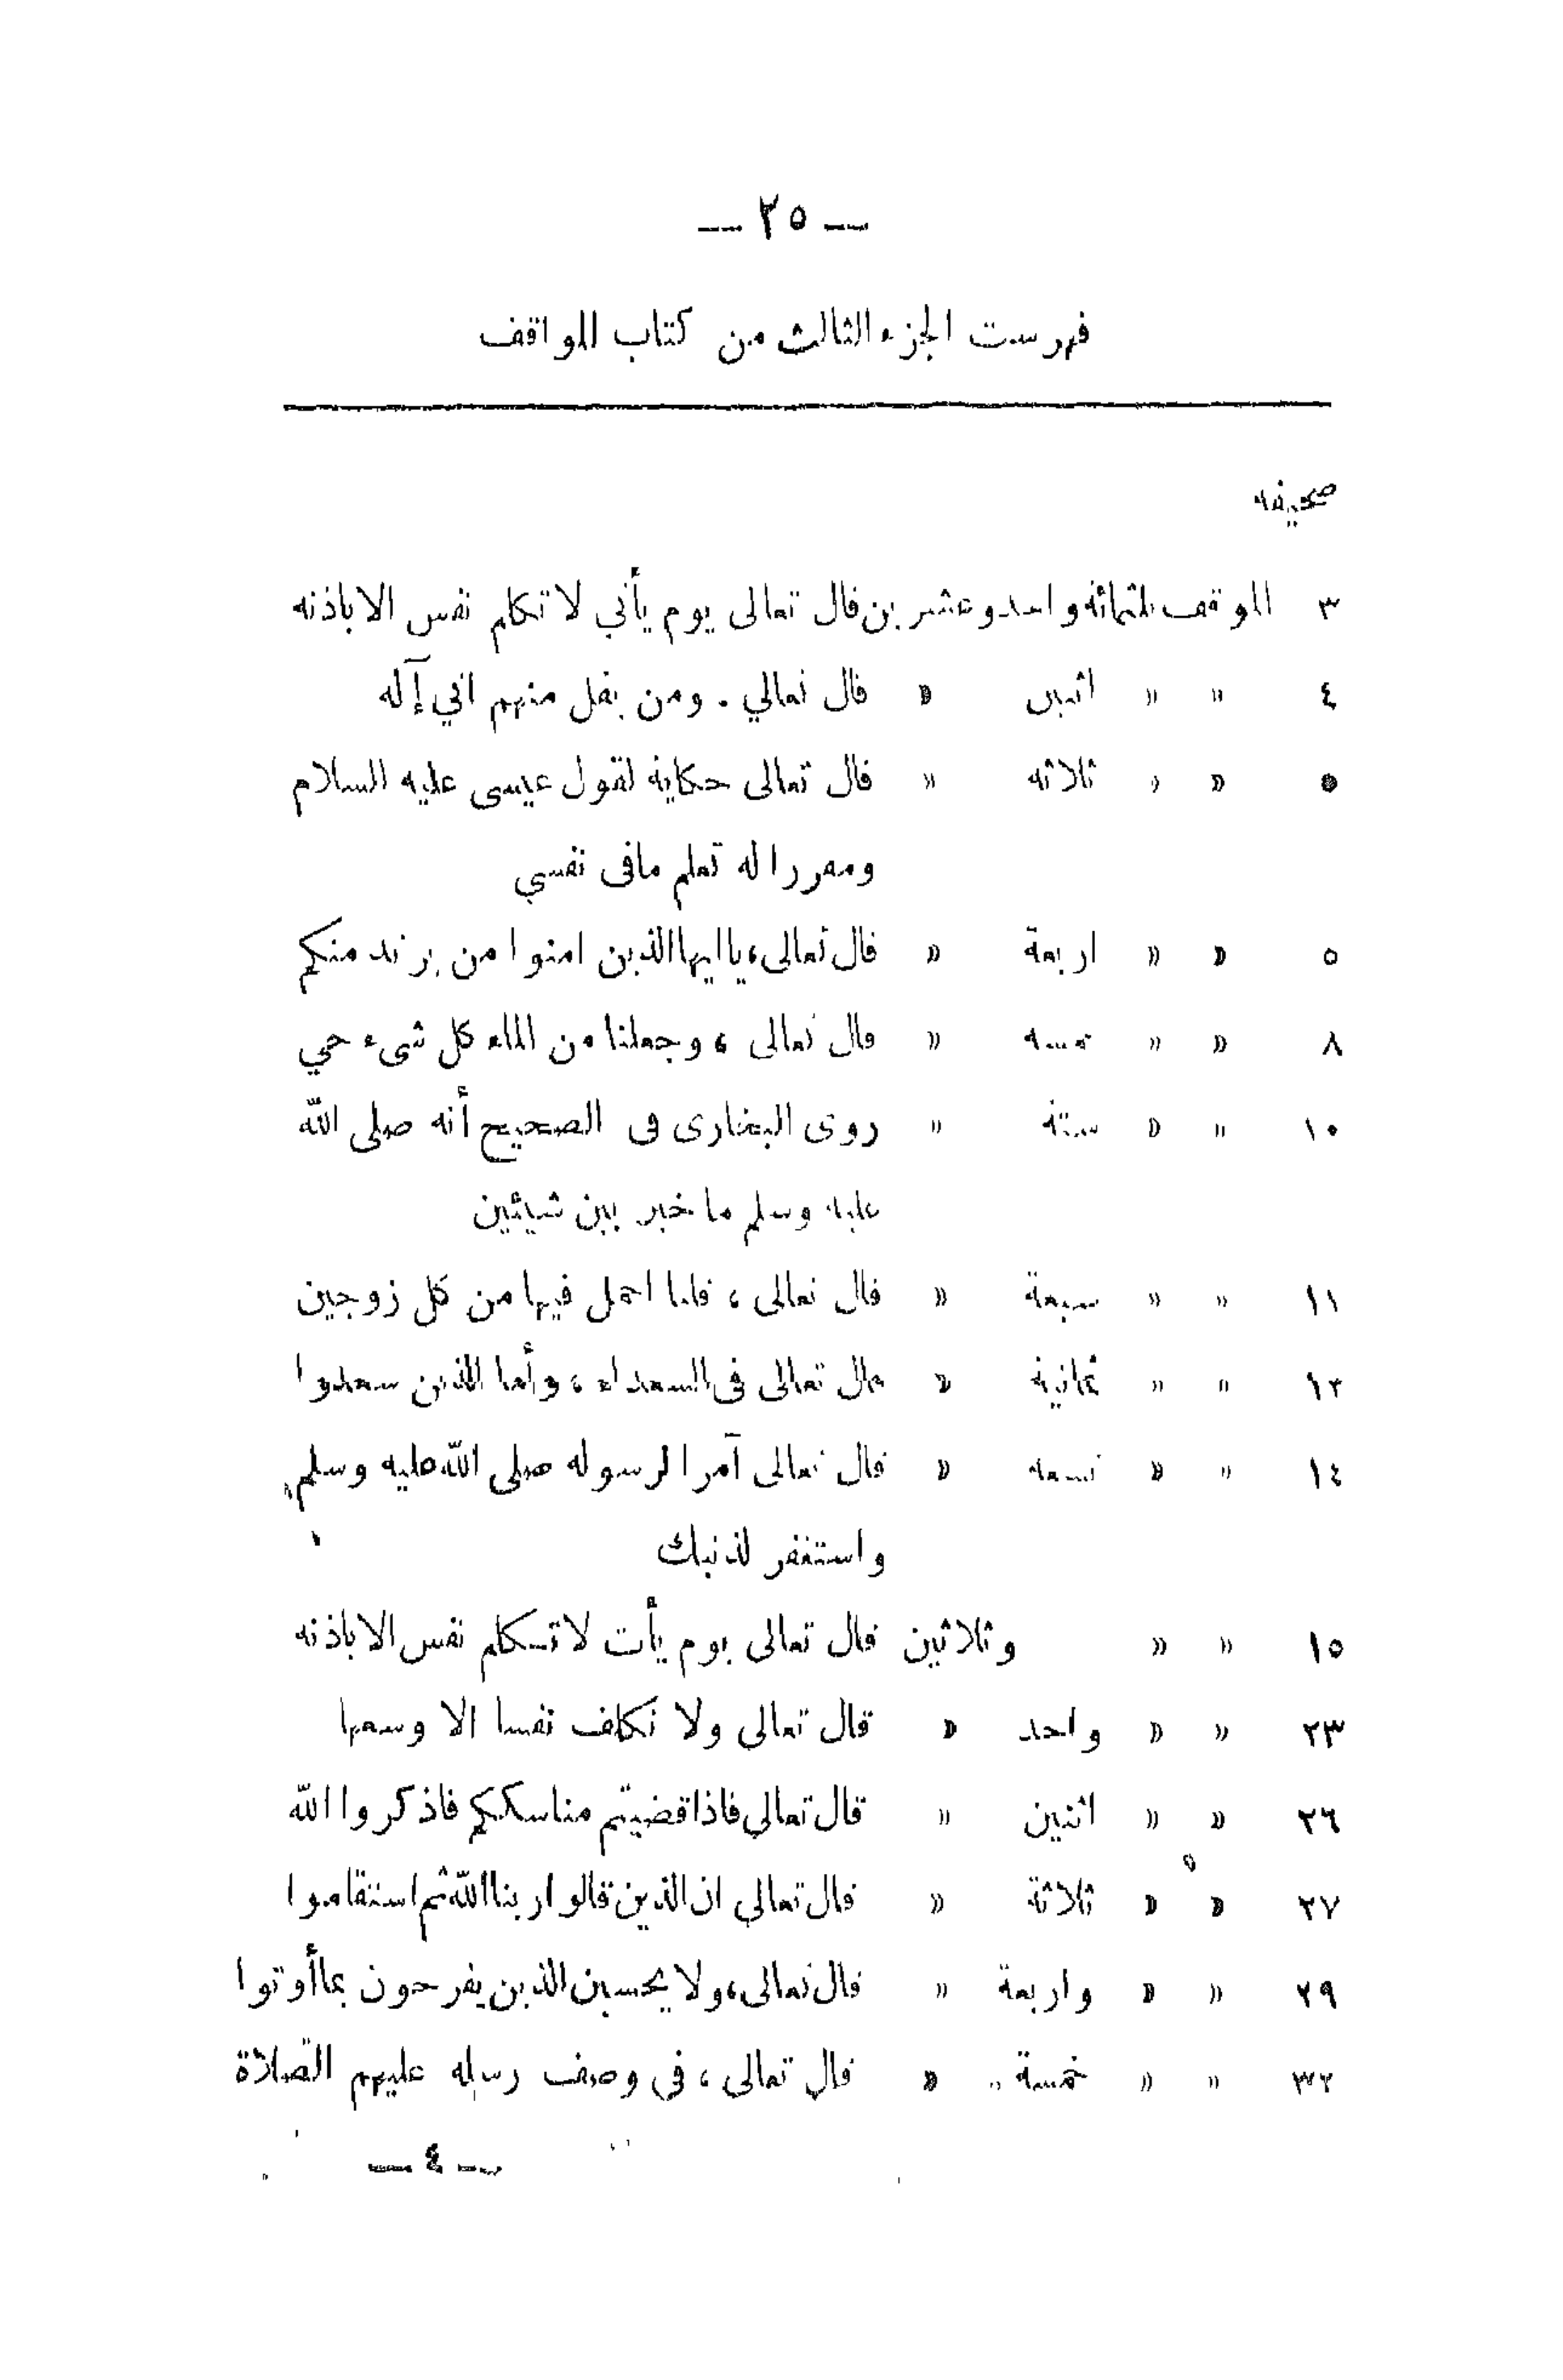 — ٢٥ —
فهرست الجزء الثالث من كتاب المواقف
صحيفه
٣ الموقف ثلثمائه واحدوعشرين قال تعالى يوم يأتي لا تكلم نفس الا باذنه
٤ » » اثنين » قال تعالي . ومن يقل منهم اني إآله
٥ » » ثلاثه » قال تعالى حكاية لقول عيسى عليه السلام
ومقررا له تعلم مافى نفسي
٥ » » اربعة » قال تعالى، ياايها الذين امنوا من يرتد منكم
٨ » » خمسه » قال تعالى ، وجعلنا من الماء كل شىء حي
١٠ » » ستة » روى البخارى فى الصحيح أنه صلى الله
عليه وسلم ما خير بين شيئين
١١ » » سبعة » قال تعالى ، قلنا احمل فيها من كل زوجين
١٢ » » ثمانية » قال تعالى فى السعداء ، وأما الذين سعدوا
١٤ » » تسعه » قال تعالى آمرا لرسوله صلى الله عليه وسلم
واستغفر لذنبك
١٥ » » وثلاثين قال تعالى يوم يأت لا تكلم نفس الا باذنه
٢٣ » » واحد » قال تعالى ولا نكلف نفسا الا وسعها
٢٦ » » اثنين » قال تعالي فاذا قضيتم مناسككم فاذكروا الله
٢٧ » » ثلاثة » قال تعالي ان الذين قالوا ربنا الله ثم استقاموا
٢٩ » » واربعة » قال تعالى، ولا يحسبن الذين يفرحون بما أوتوا
٣٢ » » خمسة » قال تعالى ، فى وصف رسله عليهم الصلاة
— ٤ —